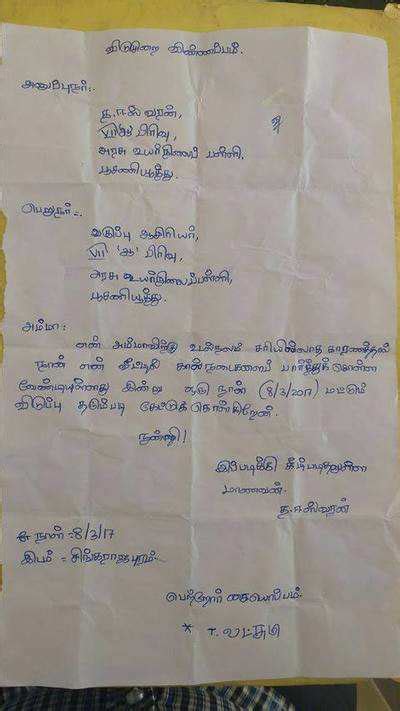 விடுமுறை விண்ணப்பம்.
அனுப்புநர்:-
த.ஈஸ்வரன்,
VII 'ஆ' பிரிவு,
அரசு உயர்நிலைப் பள்ளி,
பூசணியூத்து.
பெறுநர்:-
வகுப்பு ஆசிரியர்,
VII 'ஆ' பிரிவு,
அரசு உயர்நிலைப்பள்ளி,
பூசணியூத்து.
அம்மா:
என் அம்மாவிற்கு உடல்நலம் சரியில்லாத காரணத்தால்
நான் என் வீட்டில் கால்நடைகளைப் பார்த்துக்கொள்ள
வேண்டியுள்ளது இன்று ஒரு நாள் (8/3/2017) மட்டும்
விடுப்பு தரும்படி கேட்டுக்கொள்கிறேன்.
நன்றி!!
இப்படிக்கு கீழ்படிதலுள்ள
மாணவன்.
த.ஈஸ்வரன்
நாள் :-8/3/17
இடம் = சிங்கராஜபுரம்.
பெற்றோர் கையொப்பம்.
* T. லட்சுமி